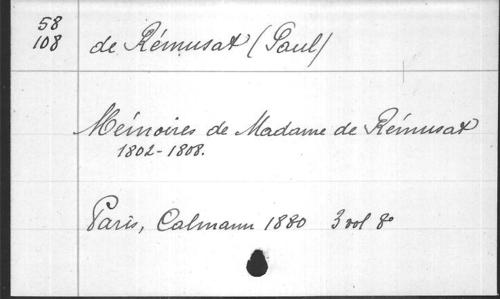 58
108
de Rémusat (Paul)
Mémoires de Madame de Rémusat
1802-1808.
Paris, Calmann 1880 3 vol 8º